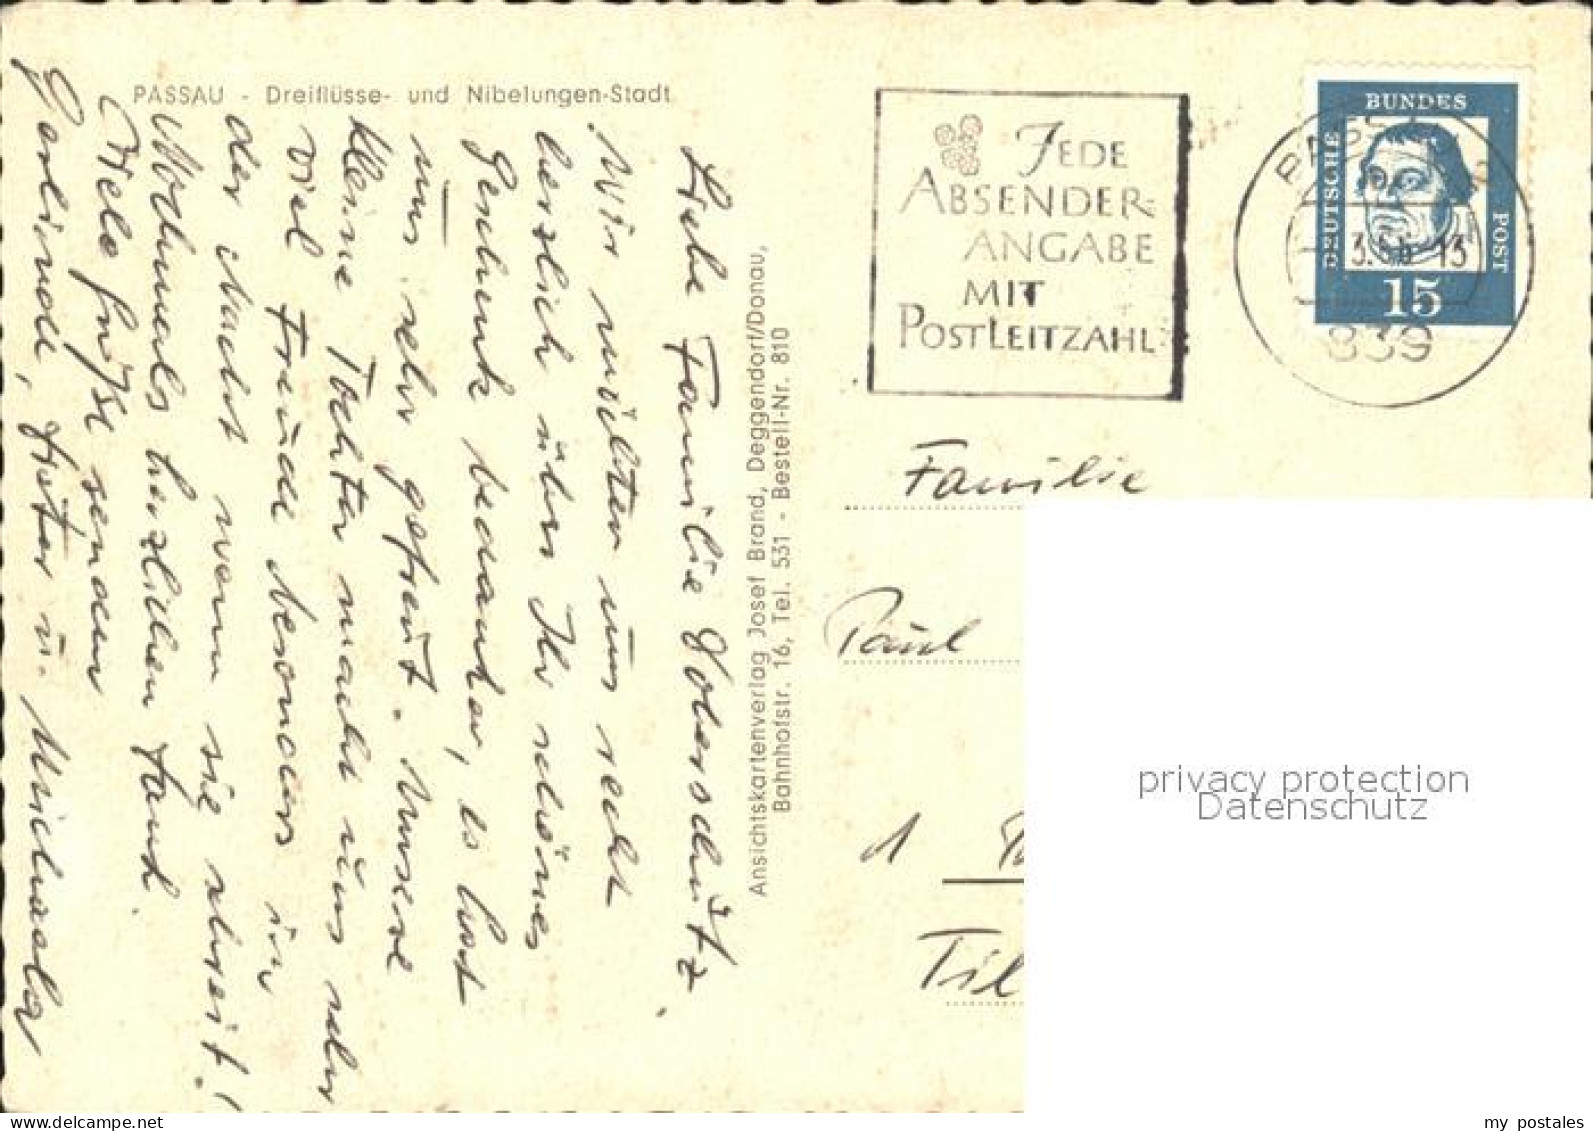 PASSAU - Dreiflüsse- und Nibelungen-Stadt
Liebe Familie Doberschütz,
Wir möchten uns recht
herzlich über Ihr schönes
Geschenk bedanken, es hat
uns sehr gefreut. Unsere
kleine Tochter macht uns sehr
viel Freude besonders in
der Nacht wenn sie schreit!
Nochmals herzlichen Dank.
Viele Grüße senden
Gerlinde, Peter u. Michaela
Ansichtskartenverlag Josef Brand, Deggendorf/Donau,
Bahnhofstr. 16, Tel. 531 - Bestell-Nr. 810
JEDE
ABSENDER-
ANGABE
MIT
POSTLEITZAHL
DEUTSCHE
BUNDES
POST
15
PASSAU 2
13
839
Familie
Paul
1
Til
privacy protection
Datenschutz
my postales